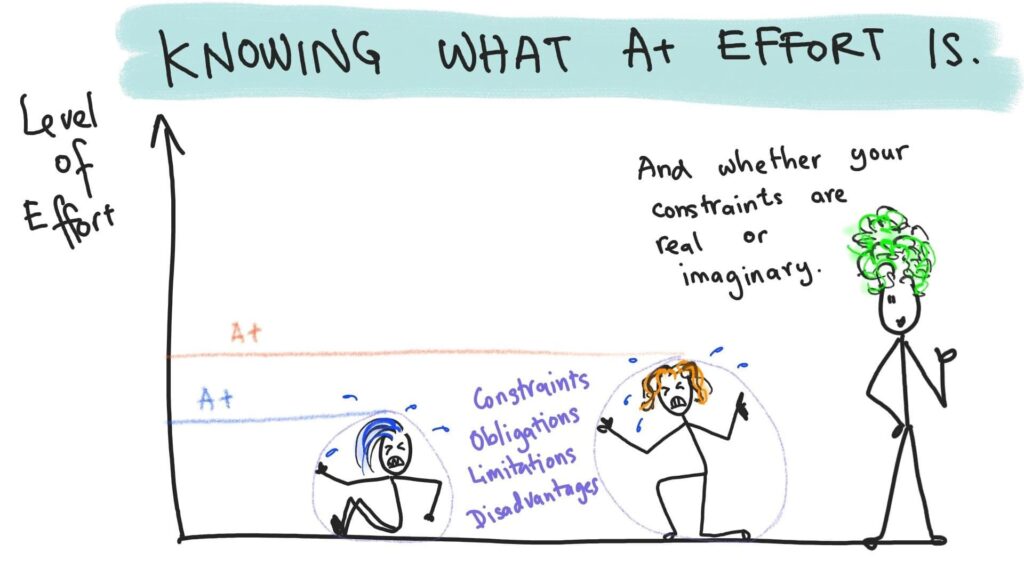 KNOWING WHAT A+ EFFORT IS.
Level
of
Effort
And whether your
constraints are
real or
imaginary.
A+
A+
Constraints
Obligations
Limitations
Disadvantages